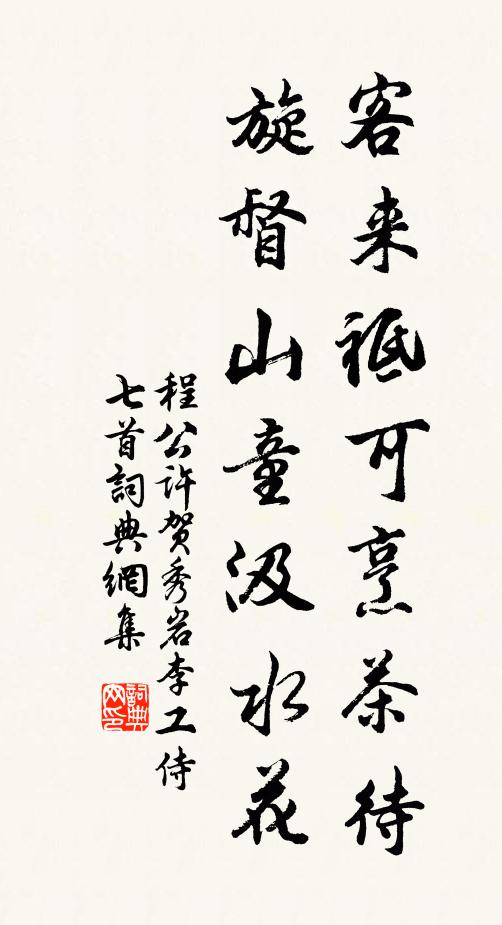 客来祗可烹茶待
旋督山童汲水花
程公许贺秀岩李工侍
七首詞典網集
詞典网印